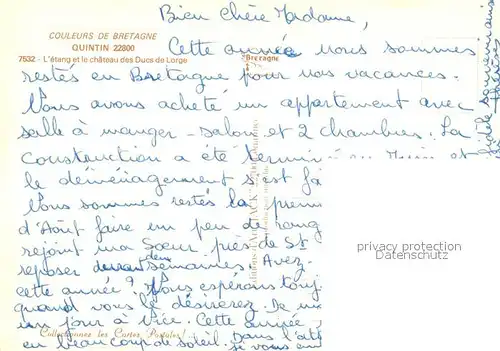 Bien chère Madame,
COULEURS DE BRETAGNE
QUINTIN 22800
7532 - L'étang et le château des Ducs de Lorge
"Bretagne
Cette année nous sommes
restés en Bretagne pour nos vacances.
Nous avons acheté un appartement avec
salle à manger - salon et 2 chambres. La
Construction a été terminée en Juin et
le déménagement s'est fa
Nous sommes restés la prem
d'Août faire un peu de rang
rejoint ma Soeur près de St
reposer durant deux semaines. Avez-
cette année? Nous espérons touj
quand vous le désirerez. Je
un jour à Nice. Cette année,
en beaucoup de soleil. Dans l'att
si vous en
Collectionnez les Cartes Postales!
JACK
privacy protection
Datenschutz